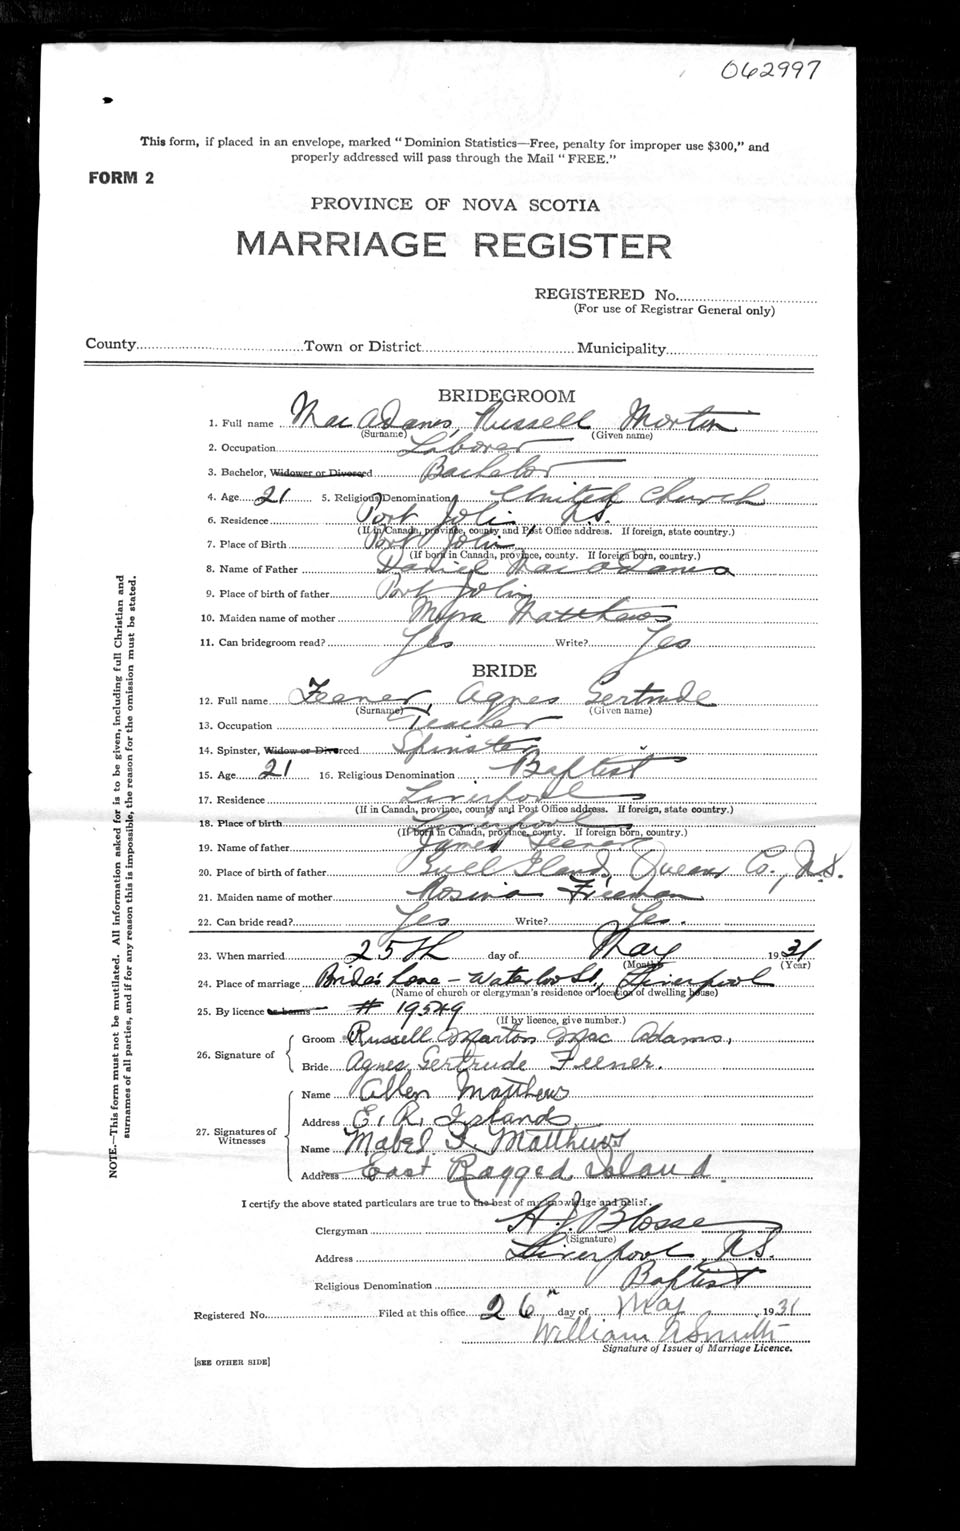 062997
This form, if placed in an envelope, marked "Dominion Statistics—Free, penalty for improper use $300," and
properly addressed will pass through the Mail "FREE."
FORM 2
PROVINCE OF NOVA SCOTIA
MARRIAGE REGISTER
REGISTERED No.
(For use of Registrar General only)
County Town or District Municipality
BRIDEGROOM
1. Full name MacAdams, Russell Morton
(Surname) (Given name)
2. Occupation Laborer
3. Bachelor, Widower or Divorced Bachelor
4. Age 21 5. Religious Denomination United Church
6. Residence Port Joli N.S.
(If in Canada, province, county and Post Office address. If foreign, state country.)
7. Place of Birth Port Joli
(If born in Canada, province, county. If foreign born, country.)
8. Name of Father Daniel MacAdams
9. Place of birth of father Port Joli
10. Maiden name of mother Myra Matthews
11. Can bridegroom read? Yes Write? Yes
BRIDE
12. Full name Feener, Agnes Gertrude
(Surname) (Given name)
13. Occupation Teacher
14. Spinster, Widow or Divorced Spinster
15. Age 21 16. Religious Denomination Baptist
17. Residence Liverpool
(If in Canada, province, county and Post Office address. If foreign, state country.)
18. Place of birth Liverpool
(If born in Canada, province, county. If foreign born, country.)
19. Name of father James Feener
20. Place of birth of father Gull Island, Queens Co., N.S.
21. Maiden name of mother Rosina Freeman
22. Can bride read? Yes Write? Yes.
23. When married 25th day of May 1931
(Month) (Year)
24. Place of marriage Bride's - Waterloo St., Liverpool
(Name of church or clergyman's residence or location of dwelling house)
25. By licence or banns # 19549
(If by licence, give number.)
26. Signature of Groom Russell Morton Mac Adams,
Bride Agnes Gertrude Feener.
27. Signatures of Witnesses Name Allen Matthews
Address E. R. Islands
Name Mabel Matthews
Address East Ragged Island
I certify the above stated particulars are true to the best of my knowledge and belief.
Clergyman H. J. Blosse
(Signature)
Address Liverpool, N.S.
Religious Denomination Baptist
Registered No. Filed at this office 26th day of May 1931
William A Smith
Signature of Issuer of Marriage Licence.
[SEE OTHER SIDE]
NOTE.—This form must not be mutilated. All information asked for is to be given, including full Christian and
surnames of all parties, and if for any reason this is impossible, the reason for the omission must be stated.